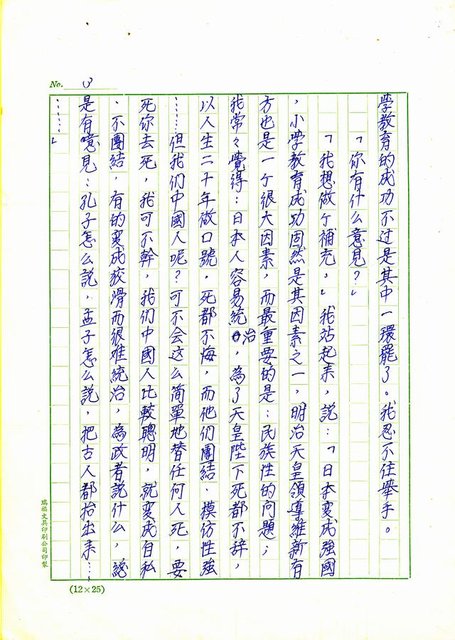 No. 3
學教育的成功不过是其中一環罷了。我忍不住舉手。
「你有什么意見？」
「我想做个補充，」我站起來，說：「日本变成強國
，小学教育成功固然是其因素之一，明治天皇領導維新有
方也是一个很大因素，而最重要的是：民族性的問題；
我常々覺得：日本人容易統治，為了天皇陛下死都不辞，
以人生二十年做口號，死都不悔，而他们團結、模仿性強
……但我们中國人呢？可不会这么简單地替任何人死，要
死你去死，我可不幹，我们中國人比較聰明，就变成自私
、不團結，有的变成狡滑而很难統治，為政者說什么，總
是有意見：孔子怎么說，孟子怎么說，把古人都抬出來…
……」
瑞成文具印刷公司印製
(12×25)